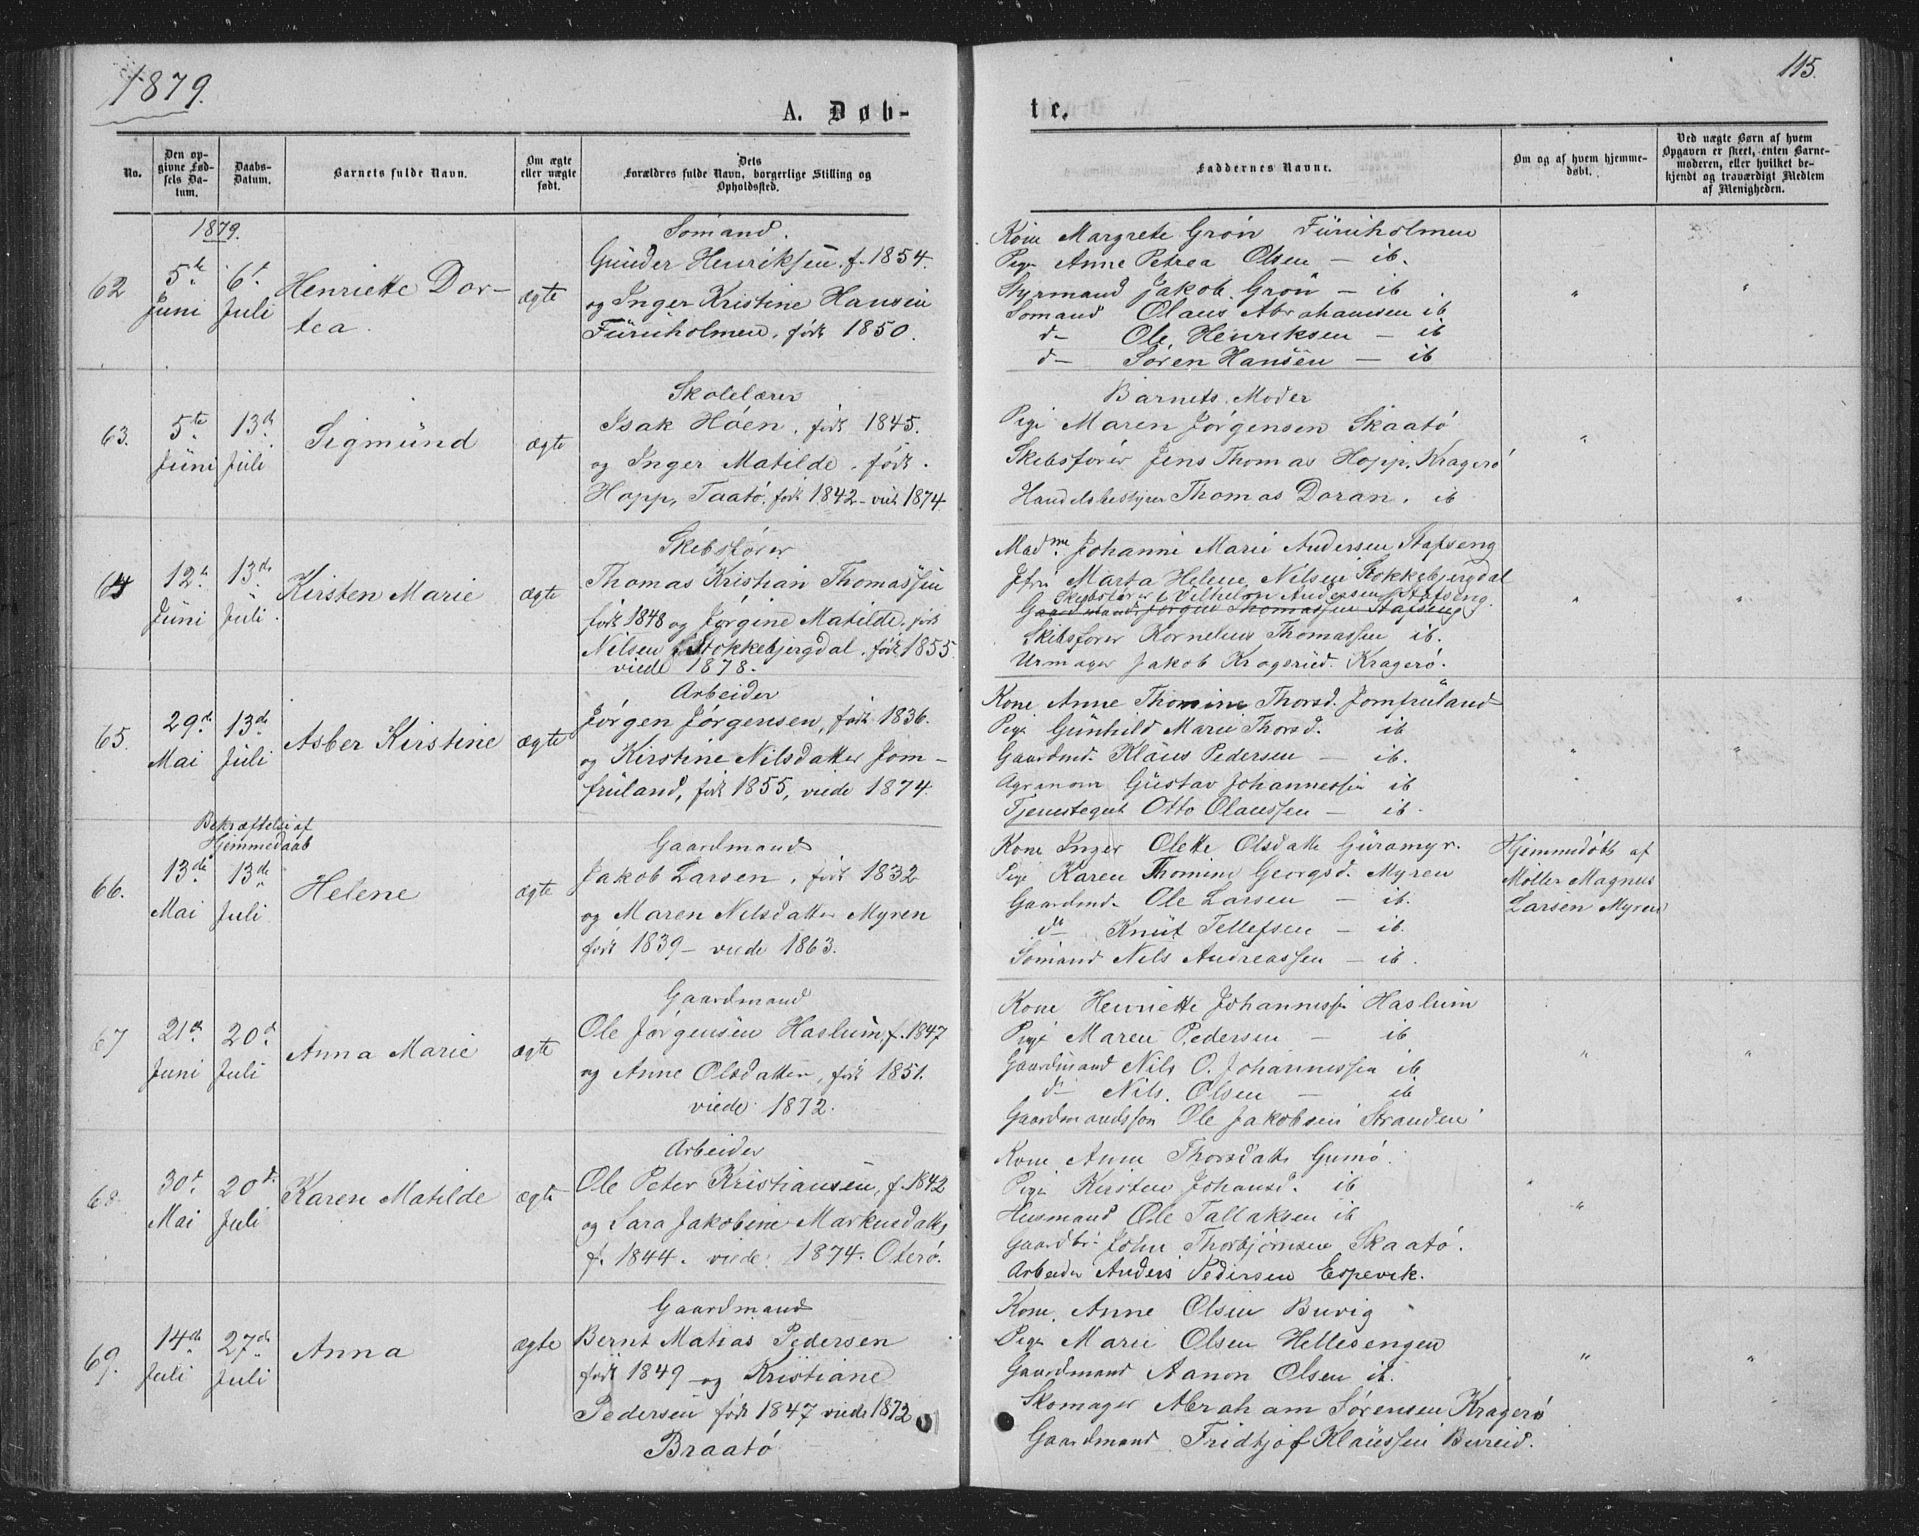 1879.
115.
A. Døb-
te.
No.
Den op-
givne Fød-
sels Da-
tum.
Daabs-
Datum.
Barnets fulde Navn.
Om ægte
eller uægte
født.
Dets
Forældres fulde Navn, borgerlige Stilling og
Opholdssted.
Faddernes Navne.
Om og af hvem hjemme-
døbt.
Ved uægte Børn af hvem
Opgaven er skeet, enten Barne-
moderen, eller hvilket be-
kjendt og troværdigt Medlem
af Menigheden.
1879.
62
5te
Juni
6te
Juli
Henriette Dor-
tea.
ægte
Sømand.
Gunder Henriksen, f. 1854.
og Inger Kristine Hansen
Furuholmen, født 1850.
Kone Margrete Grøn Furuholmen
Pige Anne Petrea Olsen — ib.
Styrmand Jakob Grøn — ib.
Sømand Olaus Abrahamsen ib
d— Ole Henriksen — ib
d— Søren Hansen — ib
63.
5te
Juni
13de
Juli
Sigmund
ægte
Skolelærer
Isak Høen, født 1845.
og Inger Matilde, født.
Hopp, Taatø, født 1842 - viet 1874
Barnets Moder
Pige Maren Jørgensen Skaatø
Skibsfører Jens Thomas Hopp, Kragerø
Handelsbestyrer Thomas Doran, ib
64
12te
Juni
13de
Juli.
Kirsten Marie
ægte
Skibsfører
Thomas Kristian Thomassen
født 1848 og Jørgine Matilde, født
Nilsen, Stokkebjergdal, født 1855.
viede 1878.
Madme Johanne Marie Andersen Stafseng
Jfr. Marta Helene Nilsen Stokkebjergdal
Skibsfører Vilhelm Andersen Stafseng.
Gaardmand Jørgen Thomassen Stafseng
Skibsfører Kornelius Thomassen ib.
Urmager Jakob Kragerø.
65.
29de
Mai
13de
Juli
Asber Kirstine
ægte
Arbeider
Jørgen Jørgensen, født 1836.
og Kirstine Nilsdatter Jom-
fruland, født 1855, viede 1874.
Kone Anne Thomine Thorsd. Jomfruland
Pige Gunhild Marie Thorsd. ib
Gaardmd. Klaus Pedersen — ib.
Agronom Gustav Johannessen ib
Tjenestegut Otto Olaussen — ib.
Bekræftelse af
Hjemmedaab
66.
13de
Mai
13de
Juli
Helene
ægte
Gaardmand
Jakob Larsen, født 1832
og Maren Nilsdatter Myren
født 1839 - viede 1863.
Kone Inger Olette Olsdatter Guramyr.
Pige Karen Thomine Georgsd. Myren
Gaardmd. Ole Larsen — ib.
d— Knut Tellefsen — ib.
Sømand Nils Andreassen — ib.
Hjemmedøbt af
Møller Magnus
Larsen Myren
67
21de
Juni
20de
Juli
Anna Marie
ægte
Gaardmand
Ole Jørgensen Haslum, f. 1847
og Anne Olsdatter, født 1851.
viede 1872.
Kone Henriette Johannessen Haslum
Pige Maren Pedersen — ib
Gaardmand Nils O. Johannessen ib
d— Nils Olsen — ib
Gaardmandssøn Ole Jakobsen Stranden
68.
30te
Mai
20de
Juli
Karen Matilde
ægte
Arbeider
Ole Peter Kristiansen, f. 1842
og Lara Jakobine Markusdatter
f. 1844. viede: 1874. Oterø.
Kone Anne Thorsdatter Gumø.
Pige Kirsten Johansd. ib
Husmand Ole Tallaksen ib
Gaardbr. John Thorbjørnsen Skaatø.
Arbeider Anders Pedersen Espevik.
69.
14de
Juli
27de
Juli
Anna
ægte
Gaardmand
Bernt Matias Pedersen
født 1849 og Kristiane
Pedersen født 1847 viede 1872
Braatø
Kone Anne Olsen Buvig
Pige Marie Olsen Hellesengen
Gaardmand Aanon Olsen ib.
Skomager Abraham Sørensen Kragerø
Gaardmand Fridtjof Klaussen Bureid.